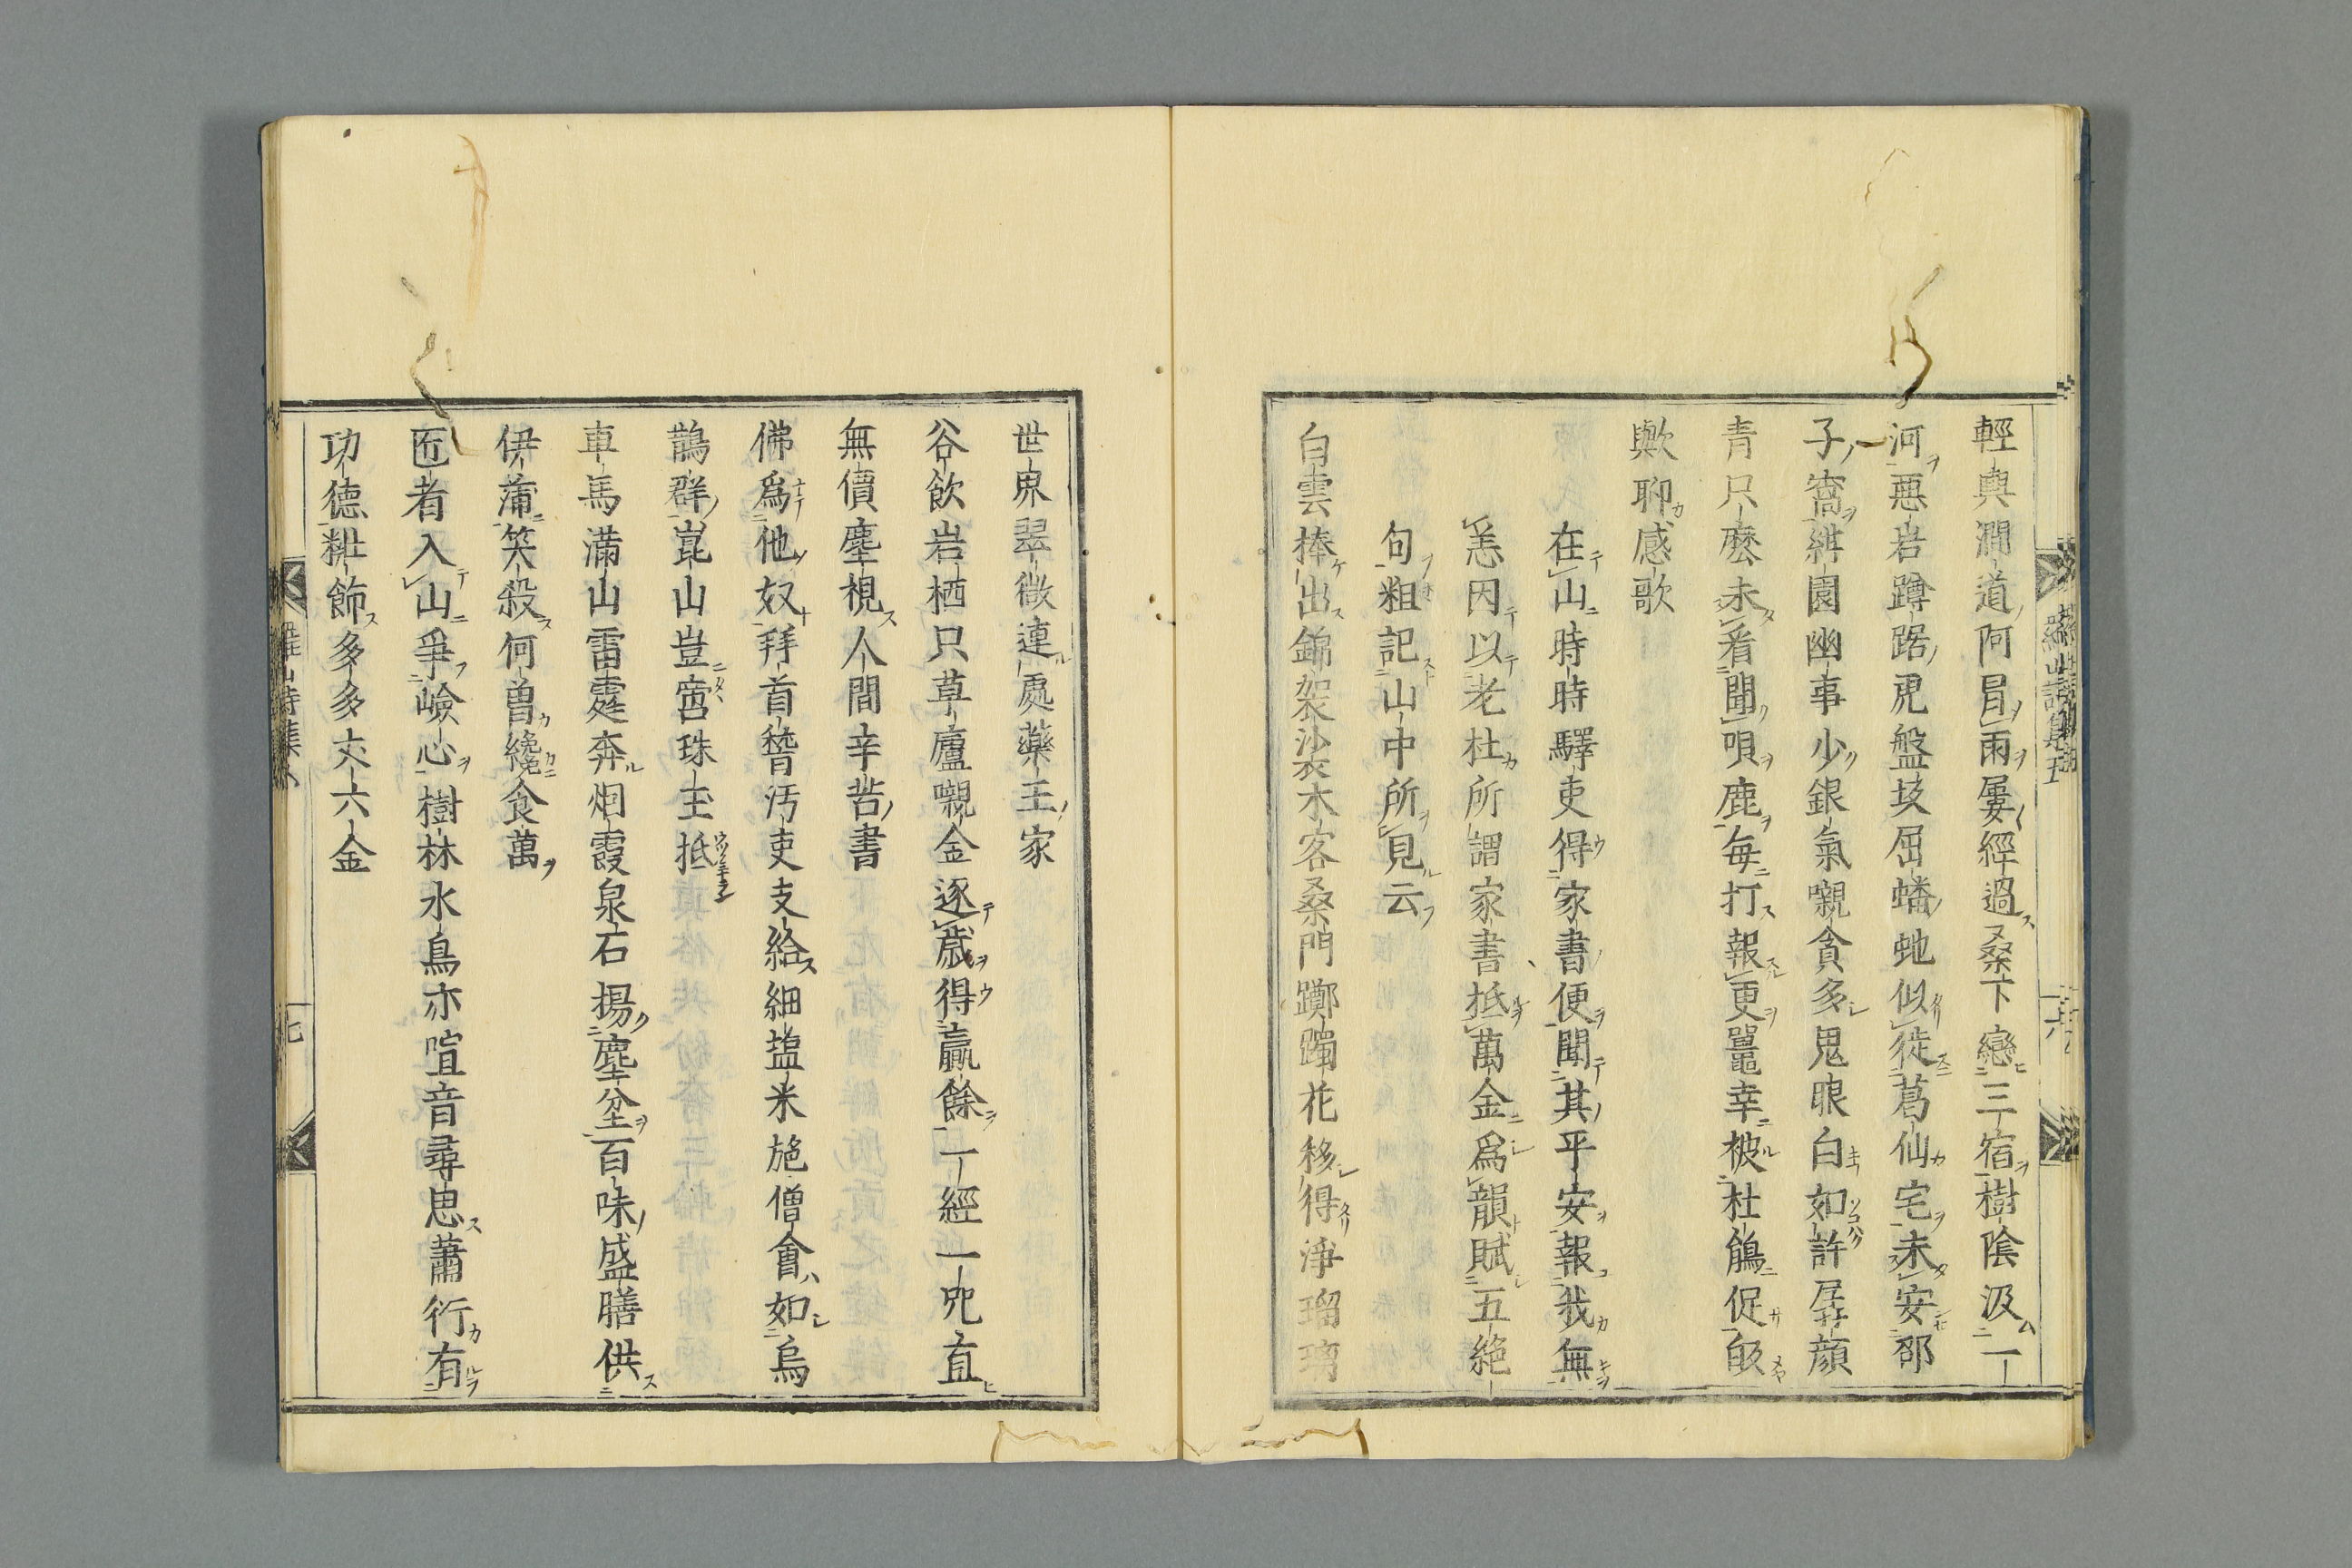 輕輿澗道阿冒雨屢經過桑下戀三宿樹陰汲一
河惡岩蹲踞虎盤坂屈蟠虵似徙葛仙宅未安邵
子窩紺園幽事少銀氣嚫貪多鬼眼白如許孱顏
青只麽未看聞唄鹿每打報更鼉幸被杜鵑促皈
歟聊感歌
在山時時驛吏得家書便聞其平安報我無
恙因以老杜所謂家書抵萬金爲韻賦五絶
句粗記山中所見云
白雲捧出錦袈裟木客桑門躑躅花移得淨瑠璃
世界翠微連處藥王家
谷飲岩栖只草廬嚫金逐歲得贏餘一經一咒直
無價塵視人間辛苦書
佛爲他奴拜首嵆汚吏支給細塩米施僧會如烏
鵲群崑山豈啻珠玉抵
車馬滿山雷霆奔烟霞泉石揚塵坌百味盛膳供
伊蒲笑殺何曽纔食萬
匠者入山爭嶮心樹林水鳥亦喧音尋思蕭衍有
功德粧飾多多丈六金
羅山詩集